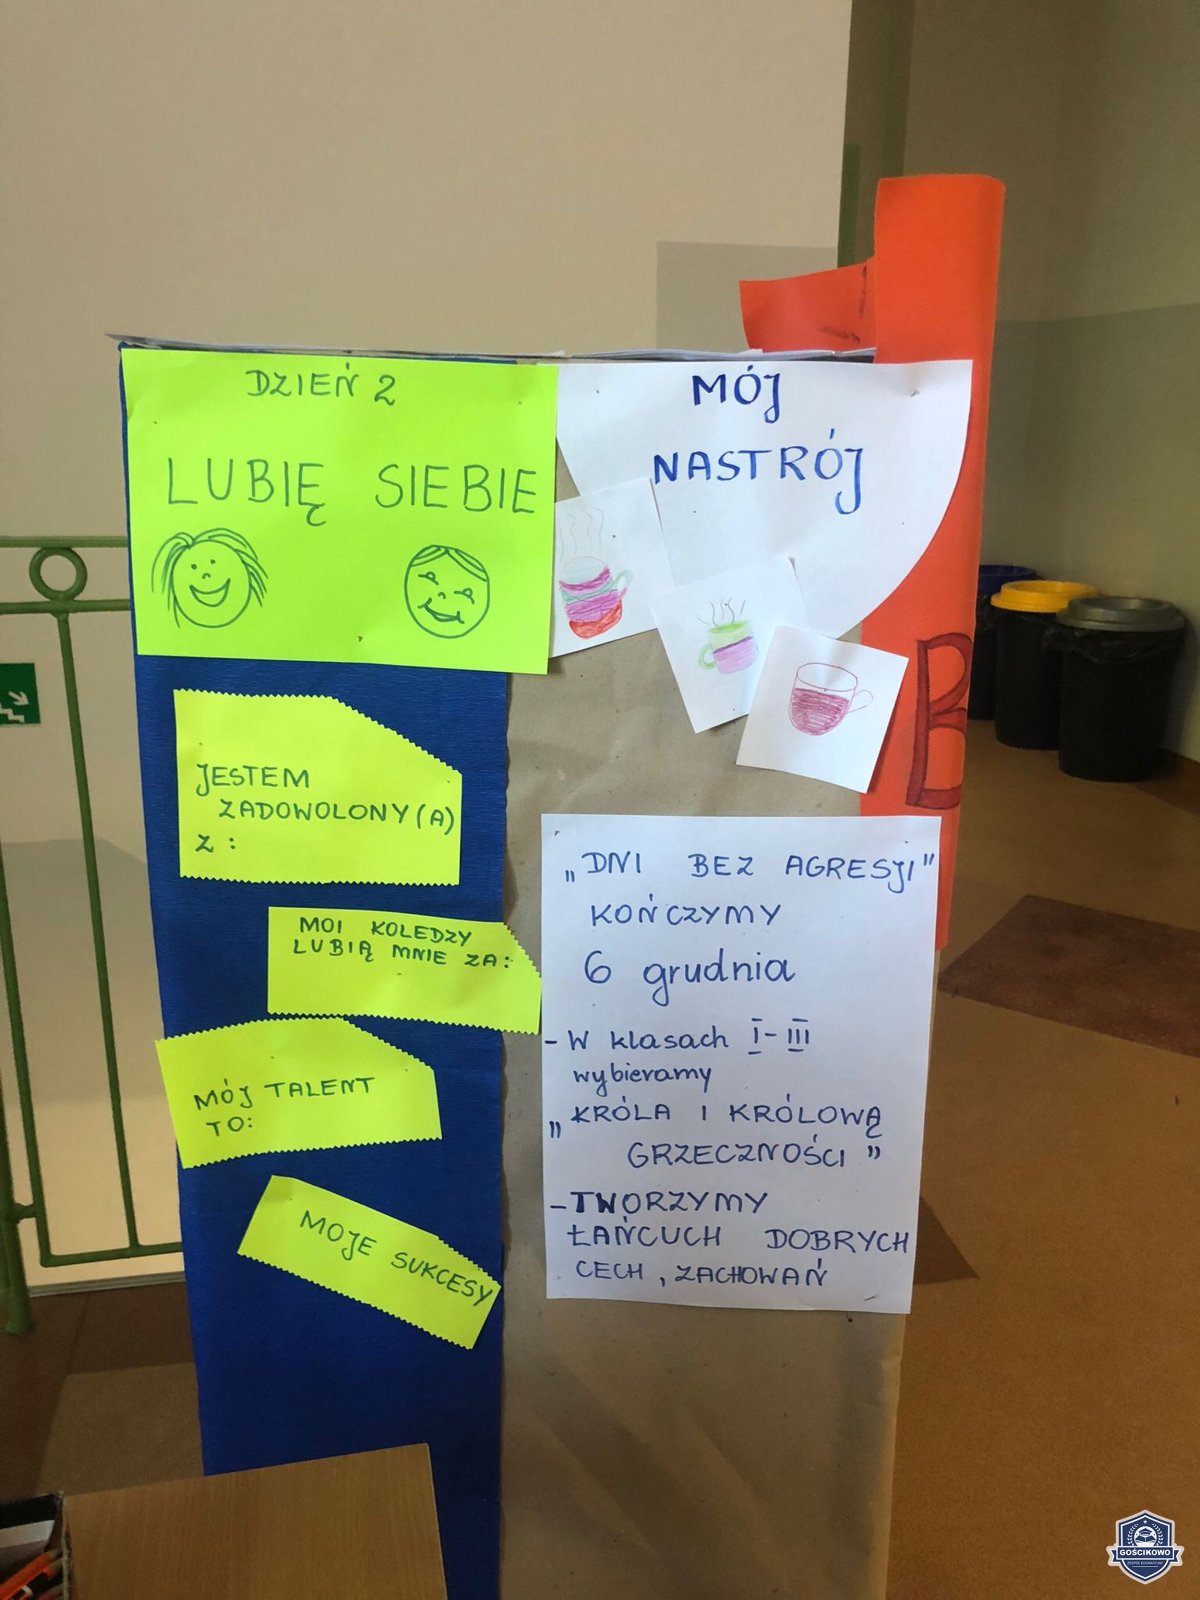 DZIEŃ 2
LUBIĘ SIEBIE
JESTEM
ZADOWOLONY(A)
Z :
MOI KOLEDZY
LUBIĄ MNIE ZA:
MÓJ TALENT
TO:
MOJE SUKCESY
MÓJ
NASTRÓJ
„DNI BEZ AGRESJI"
KOŃCZYMY
6 grudnia
- W klasach I-III
wybieramy
„KRÓLA I KRÓLOWĄ
GRZECZNOŚCI"
- TWORZYMY
ŁAŃCUCH DOBRYCH
CECH, ZACHOWAŃ
B
GOŚCIKOWO